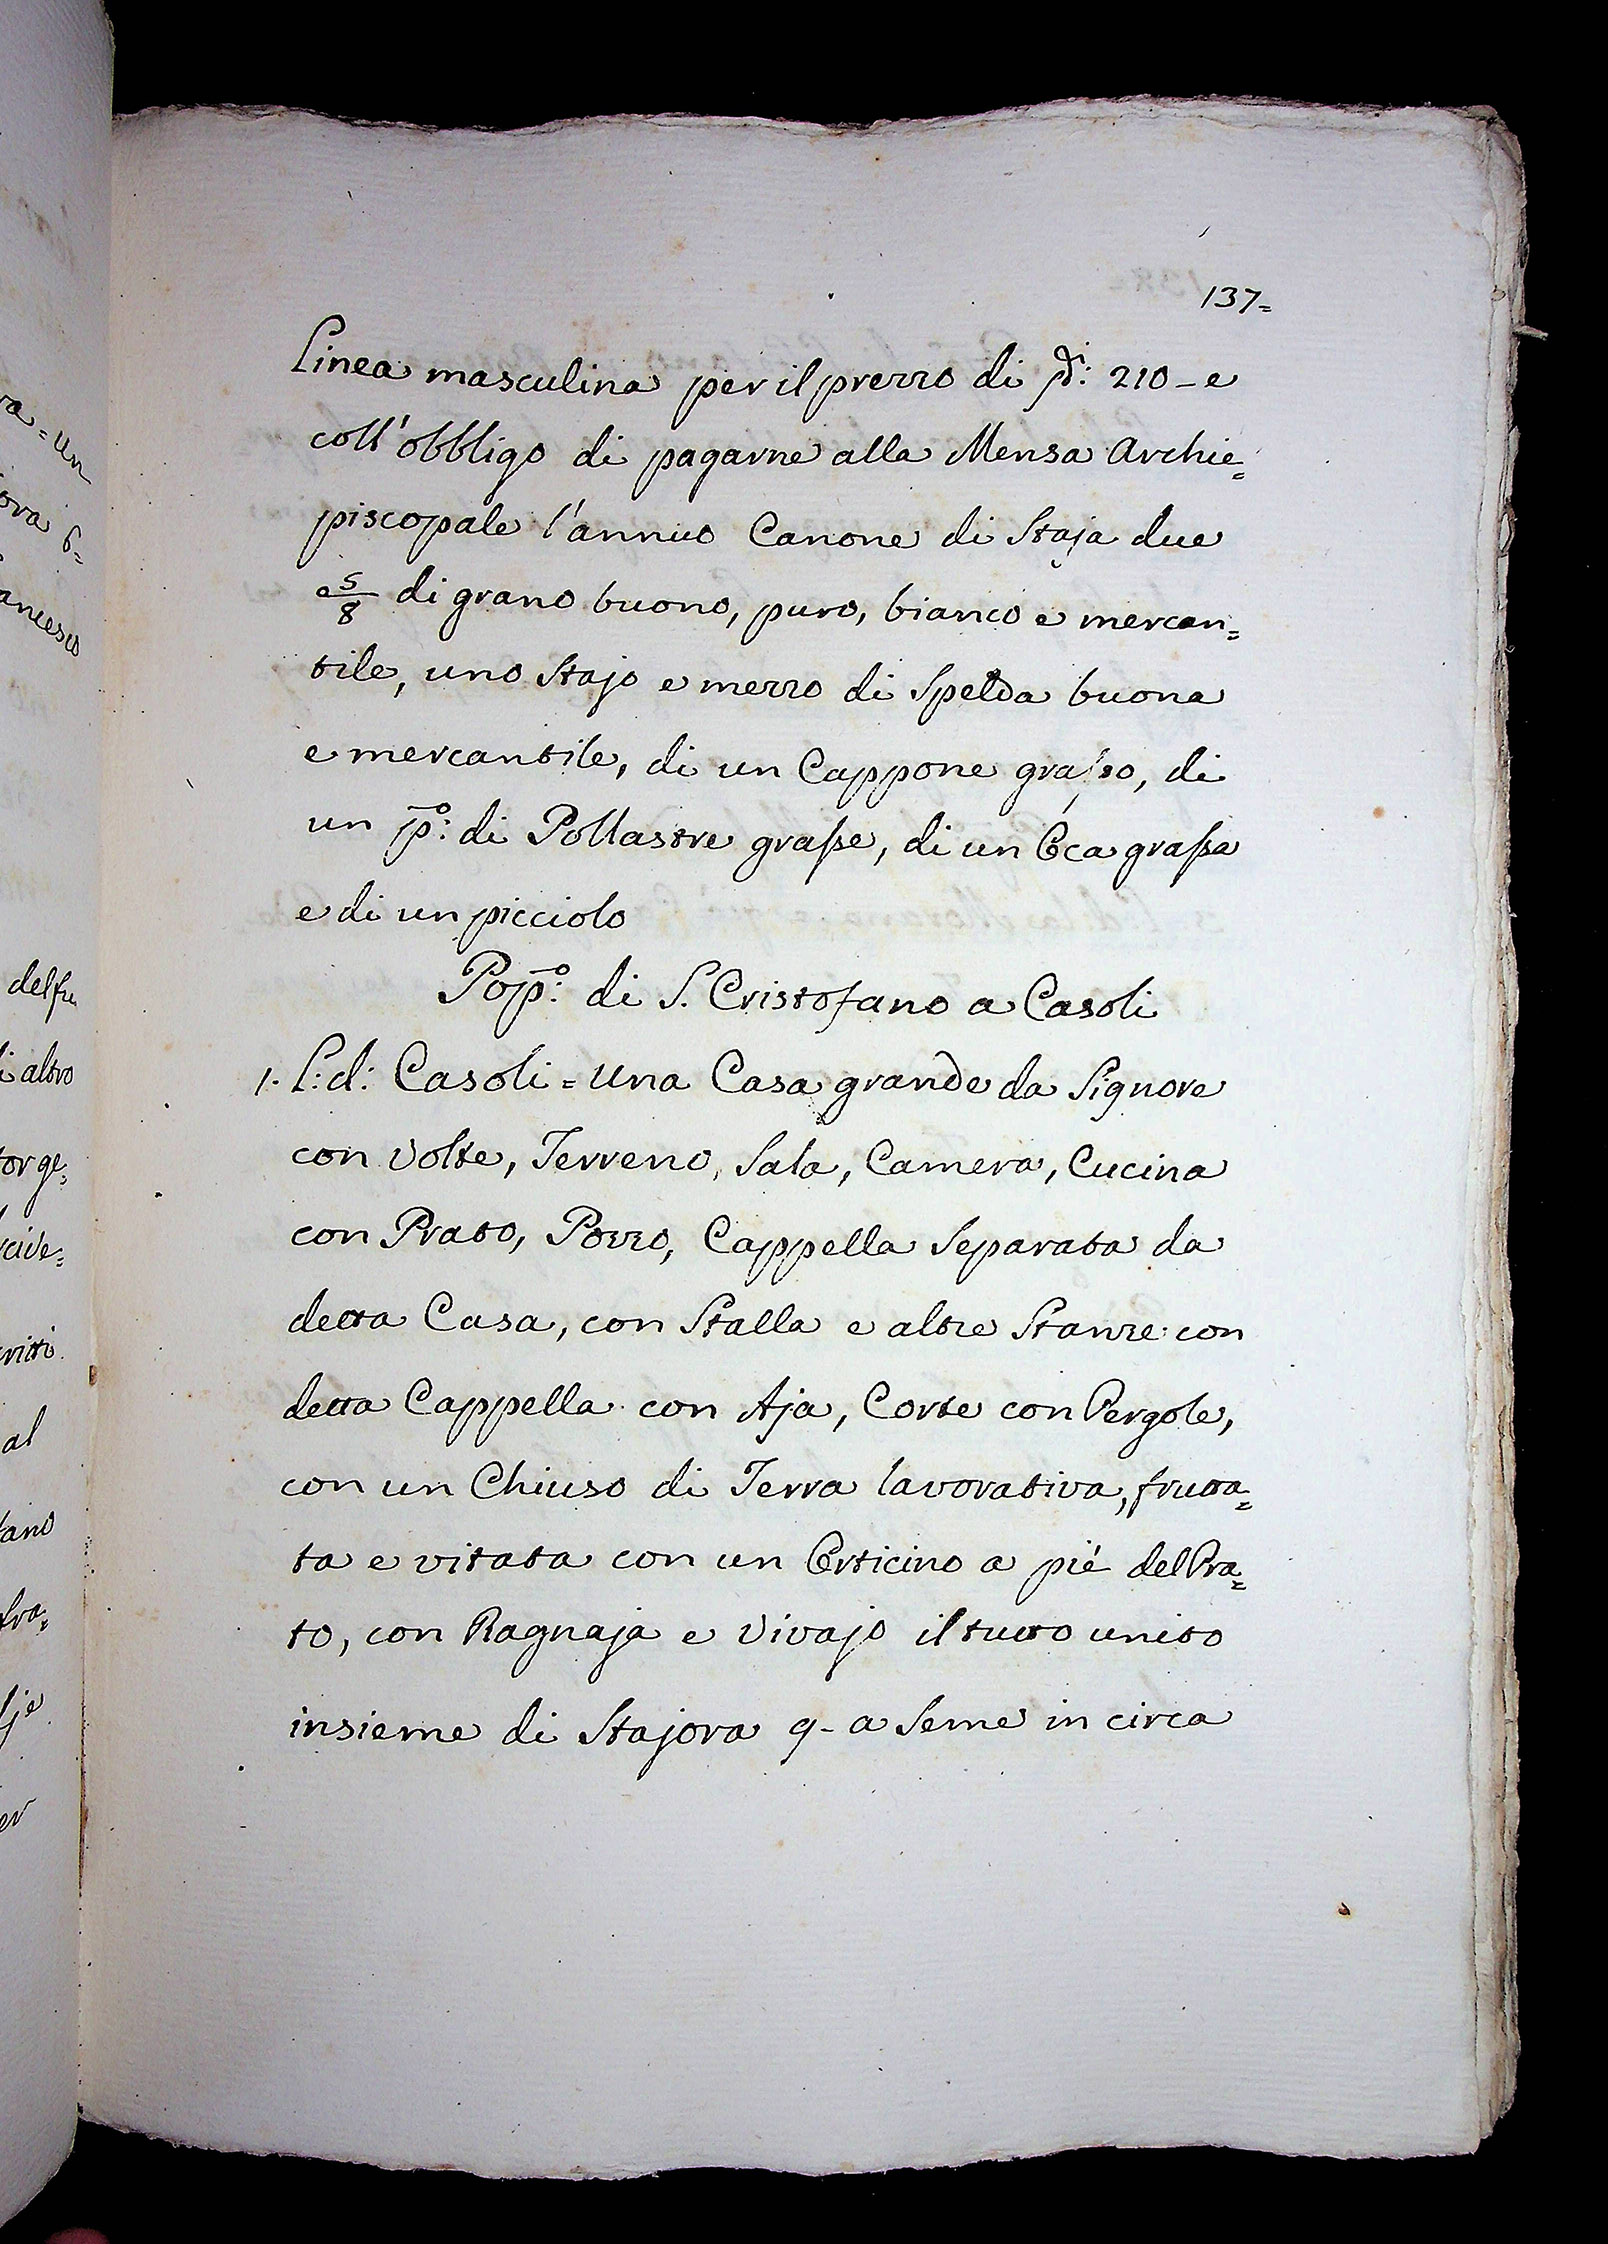 137=
Linea masculina per il prezzo di pdi: 210 - e
coll'obbligo di pagarne alla Mensa Archie=
piscopale l'annuo Canone di Staja due
e 5/8 di grano buono, puro, bianco e mercan=
tile, uno Stajo e mezzo di Spelda buona
e mercantile, di un Cappone grasso, di
un po: di Pollastre grasse, di un Oca grassa
e di un picciolo
Popo: di S. Cristofano a Casoli
1. L: d: Casoli = Una Casa grande da Signore
con Volte, Terreno, Sala, Camera, Cucina
con Prato, Pozzo, Cappella Separata da
detta Casa, con Stalla e altre Stanze con
detta Cappella con Aja, Corte con Pergole,
con un Chiuso di Terra lavorativa, frutta=
ta e vitata con un Orticino a pié del Pra=
to, con Ragnaja e Vivajo il tutto unito
insieme di Stajora 9 - a Seme in circa